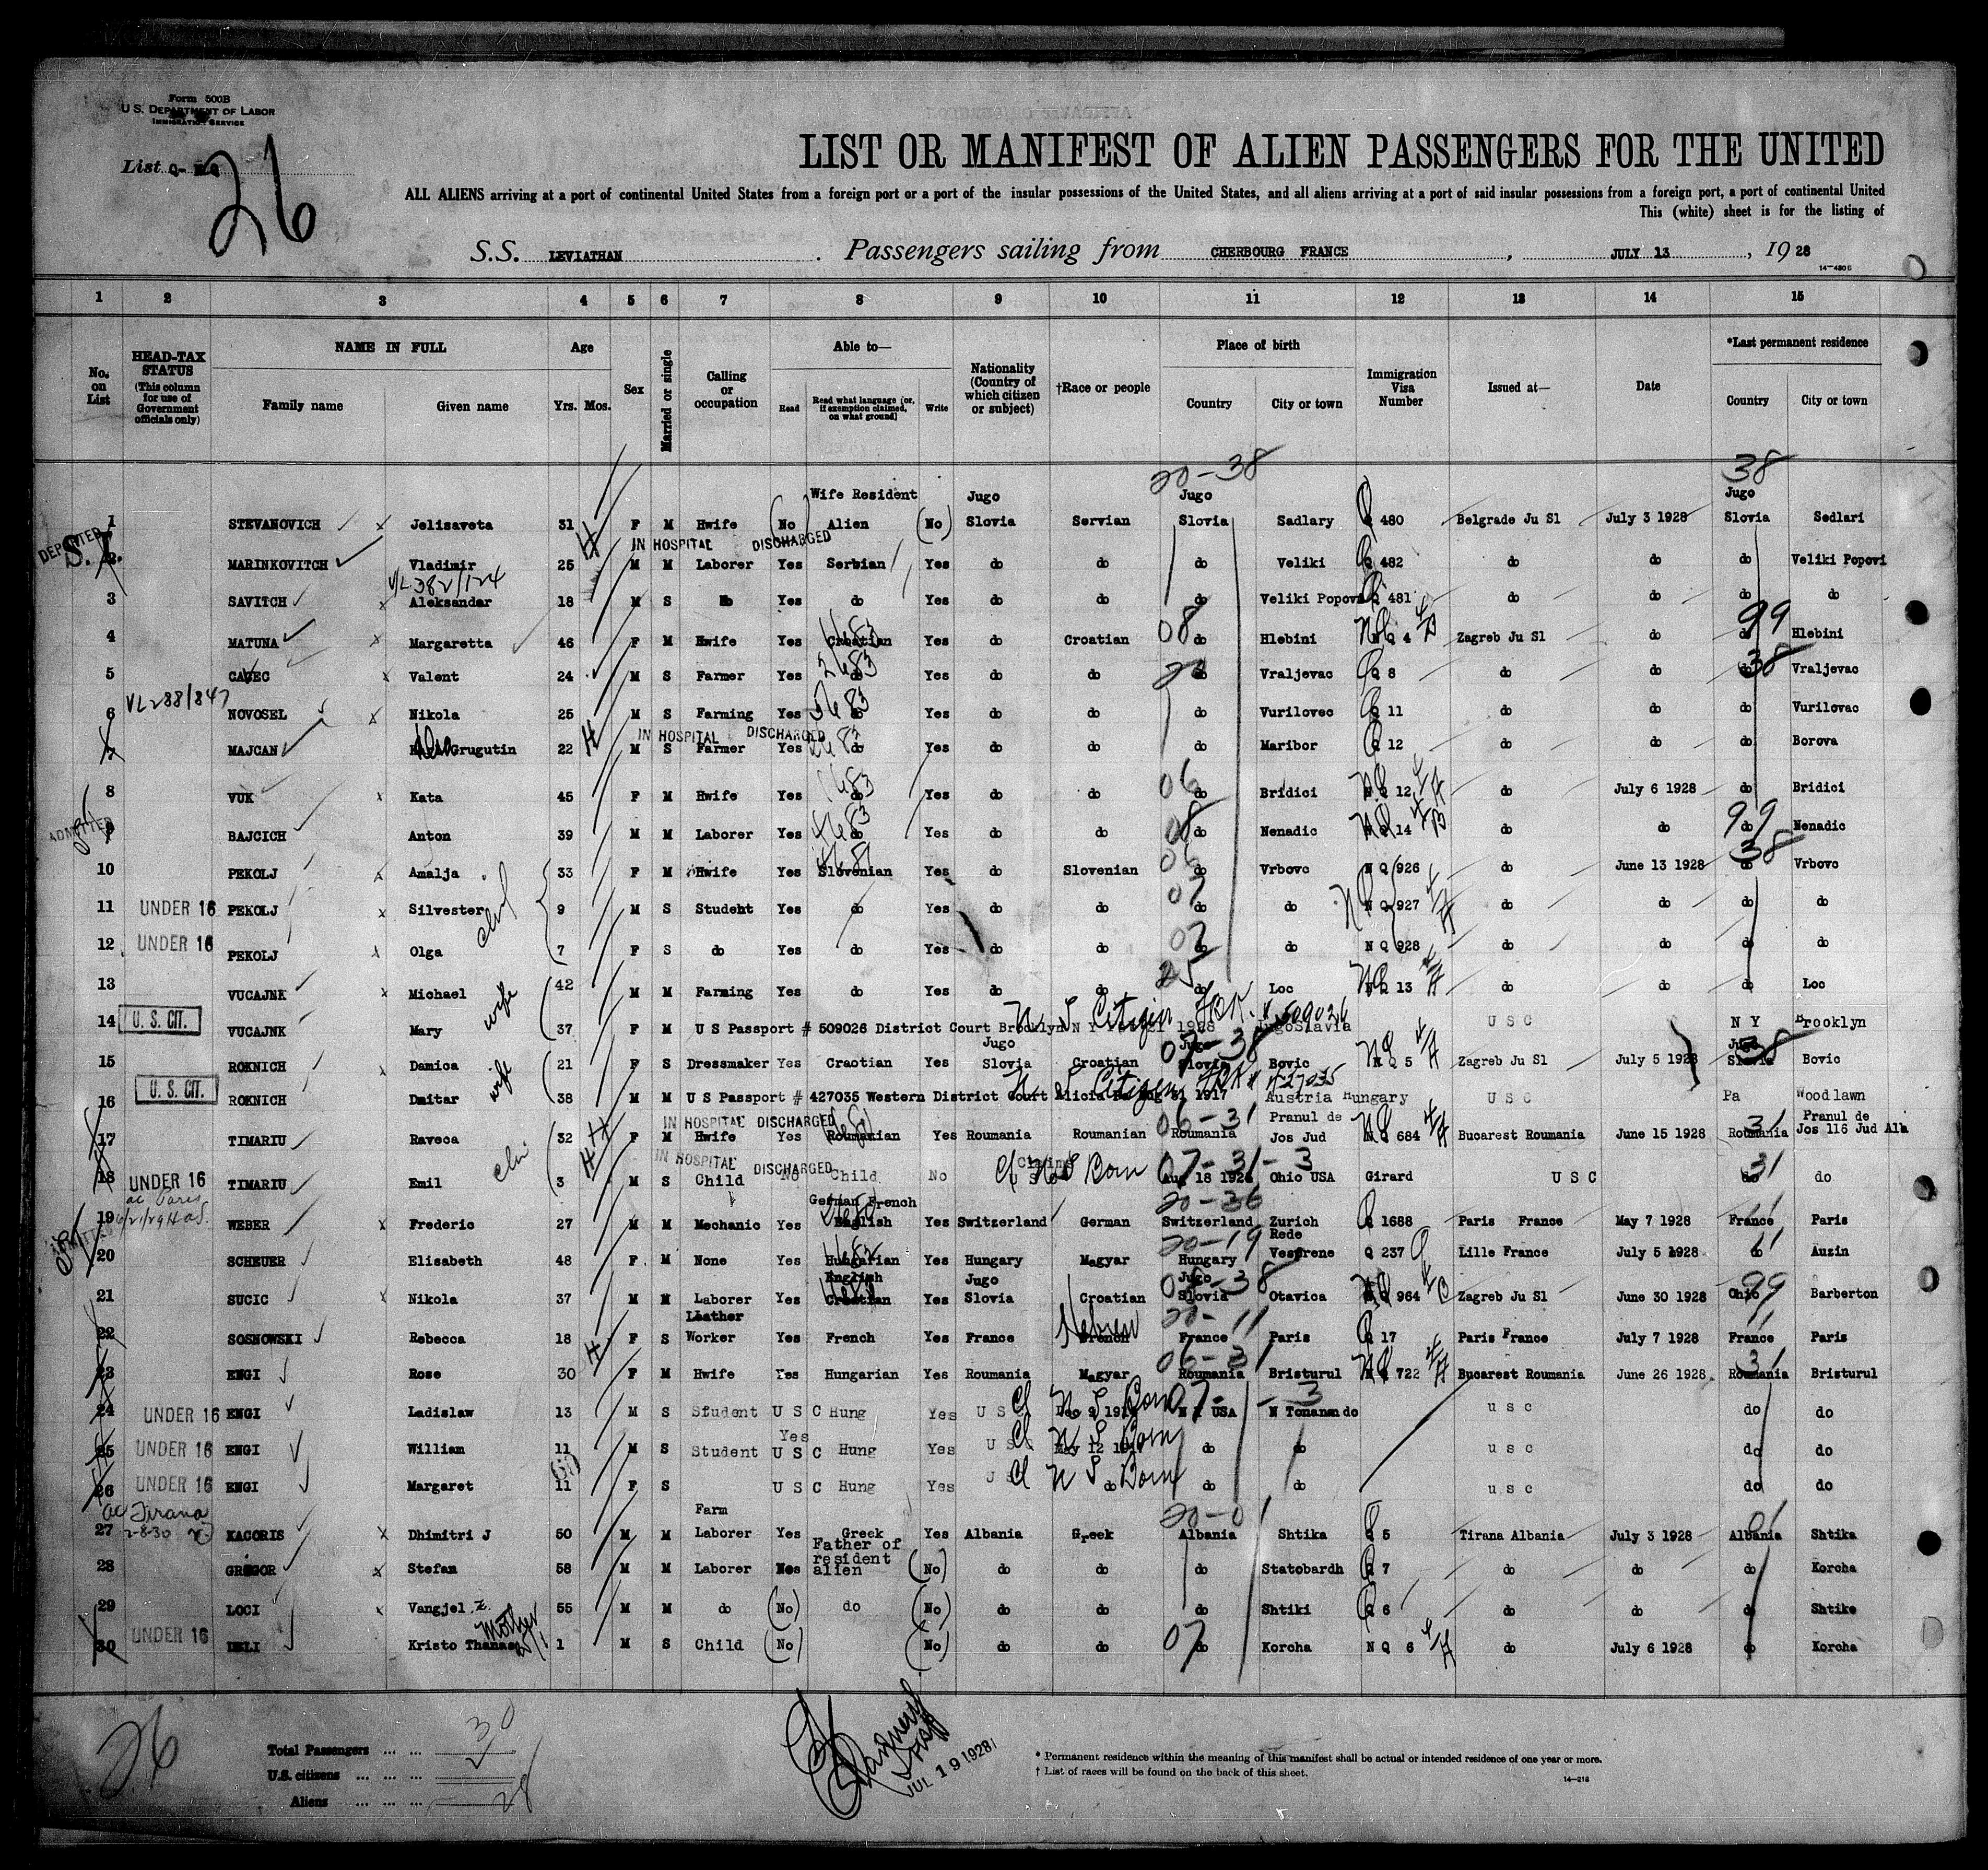 Form 500B
U. S. DEPARTMENT OF LABOR
IMMIGRATION SERVICE
List Q-
26
LIST OR MANIFEST OF ALIEN PASSENGERS FOR THE UNITED
ALL ALIENS arriving at a port of continental United States from a foreign port or a port of the insular possessions of the United States, and all aliens arriving at a port of said insular possessions from a foreign port, a port of continental United
This (white) sheet is for the listing of
S.S. LEVIATHAN . Passengers sailing from CHERBOURG FRANCE , JULY 13 , 1928
14—480 B
1 2 3 4 5 6 7 8 9 10 11 12 13 14 15
No. on List
HEAD-TAX STATUS (This column for use of Government officials only)
NAME IN FULL
Family name Given name
Age
Yrs. Mos.
Sex
Married or single
Calling or occupation
Able to—
Read Read what language (or, if exemption claimed, on what ground) Write
Nationality (Country of which citizen or subject)
†Race or people
Place of birth
Country City or town
Immigration Visa Number
Issued at—
Date
*Last permanent residence
Country City or town
20-38 38
Wife Resident Jugo Jugo Jugo
1 STEVANOVICH Jelisaveta 31 F M Hwife (No) Alien (No) Slovia Servian Slovia Sadlary Q 480 Belgrade Ju Sl July 3 1928 Slovia Sedlari
DEPORTED S. I. IN HOSPITAL DISCHARGED
2 MARINKOVITCH Vladimir 25 M M Laborer Yes Serbian Yes do do do Veliki Q 482 do do do Veliki Popovi
V/L 382/124
3 SAVITCH Aleksandar 18 M S Yes do Yes do do do Veliki Popovi Q 481 do do do do
4 MATUNA Margaretta 46 F M Hwife Yes Croatian Yes do Croatian 08 do Hlebini N Q 4 Zagreb Ju Sl do do 99 Hlebini
5 Valent 24 M S Farmer Yes do Yes do do do Vraljevac Q 8 do do do 38 Vraljevac
VL 288/847
6 NOVOSEL Nikola 25 M S Farming Yes do Yes do do do Vurilovec Q 11 do do do Vurilovac
IN HOSPITAL DISCHARGED
7 MAJCAN Grugutin 22 M S Farmer Yes do Yes do do do Maribor Q 12 do do do Borova
8 VUK Kata 45 F M Hwife Yes do Yes do do 06 do Bridici N Q 12 do July 6 1928 do Bridici
ADMITTED
9 BAJCICH Anton 39 M M Laborer Yes do Yes do do 08 do Nenadic N Q 14 do do do 99 Nenadic
10 PEKOLJ Amalja 33 F M Hwife Yes Slovenian Yes do Slovenian 06 do Vrbovc N Q 926 do June 13 1928 do 38 Vrbovc
11 UNDER 16 PEKOLJ Silvester 9 M S Student Yes do Yes do do 07 do do N Q 927 do do do do
12 UNDER 16 PEKOLJ Olga 7 F S do Yes do Yes do do 07 do do N Q 928 do do do do
13 VUCAJNK Michael 42 M M Farming Yes do Yes do do 25 do Loc N Q 13 do do do Loc
wife
14 U. S. CIT. VUCAJNK Mary 37 F M U S Passport # 509026 District Court Brooklyn N Y 1928 JugoSlavia U S C N Y Brooklyn
U S Citizen # 509026
Jugo Jugo Jugo
15 ROKNICH Damica 21 F S Dressmaker Yes Craotian Yes Slovia Croatian 07-38 Slovia Bovic N Q 5 Zagreb Ju Sl July 5 1928 Slovia 38 Bovic
wife
16 U. S. CIT. ROKNICH Dmitar 38 M M U S Passport # 427035 Western District Court 1917 Austria Hungary U S C Pa Woodlawn
U S Citizen # 427035
IN HOSPITAL DISCHARGED Pranul de Pranul de
17 TIMARIU Raveca 32 F M Hwife Yes Roumanian Yes Roumania Roumanian 06-31 Roumania Jos Jud N Q 684 Bucarest Roumania June 15 1928 Roumania 31 Jos 116 Jud Alb
IN HOSPITAL DISCHARGED
18 UNDER 16 TIMARIU Emil 3 M S Child No Child No U S Born 07-31-3 Aug 18 192 Ohio USA Girard U S C do 31 do
German French 20-36
19 WEBER Frederic 27 M M Mechanic Yes English Yes Switzerland German Switzerland Zurich Q 1688 Paris France May 7 1928 France 11 Paris
20-19 Rede
20 SCHEUER Elisabeth 48 F M None Yes Hungarian Yes Hungary Magyar Hungary Vesprene Q 237 Lille France July 5 1928 do 11 Auzin
English Jugo Jugo
21 SUCIC Nikola 37 M M Laborer Yes Croatian Yes Slovia Croatian Slovia Otavica N Q 964 Zagreb Ju Sl June 30 1928 Ohio 99 Barberton
Leather Hebrew 20-11
22 SOSNOWSKI Rebecca 18 F S Worker Yes French Yes France French France Paris Q 17 Paris France July 7 1928 France 11 Paris
06-31
23 ENGI Rose 30 F M Hwife Yes Hungarian Yes Roumania Magyar Roumania Bristurul N Q 722 Bucarest Roumania June 26 1928 Roumania 31 Bristurul
24 UNDER 16 ENGI Ladislaw 13 M S Student U S C Hung Yes U S Born 07- -3 N Y USA N Tonananda u s c do do
Yes
25 UNDER 16 ENGI William 11 M S Student U S C Hung Yes U S Born May 12 do do u s c do do
26 UNDER 16 ENGI Margaret 11 F S U S C Hung Yes U S Born do do do u s c do do
ac Tirana Farm 20-01 01
27 2-8-30 KACORIS Dhimitri J 50 M M Laborer Yes Greek Yes Albania Greek Albania Shtika Q 5 Tirana Albania July 3 1928 Albania Shtika
Father of resident alien
28 GRIGOR Stefan 58 M M Laborer (No) do do do Statobardh Q 7 do do do Korcha
29 LOCI Vangjel 55 M M do (No) do (No) do do do Shtiki Q 6 do do do Shtike
Mother
30 UNDER 16 Kristo Thanas 1 M S Child (No) (No) do do 07 do Korcha N Q 6 do July 6 1928 do Korcha
26
Total Passengers ... ... 30
U.S. citizens ... ... ... 2
Aliens ... ... ... 28
JUL 19 1928
* Permanent residence within the meaning of this manifest shall be actual or intended residence of one year or more.
† List of races will be found on the back of this sheet.
14—218